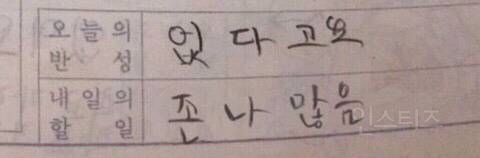 오늘의 반성 없다고요
내일의 할일 존나 많음
인스티즈